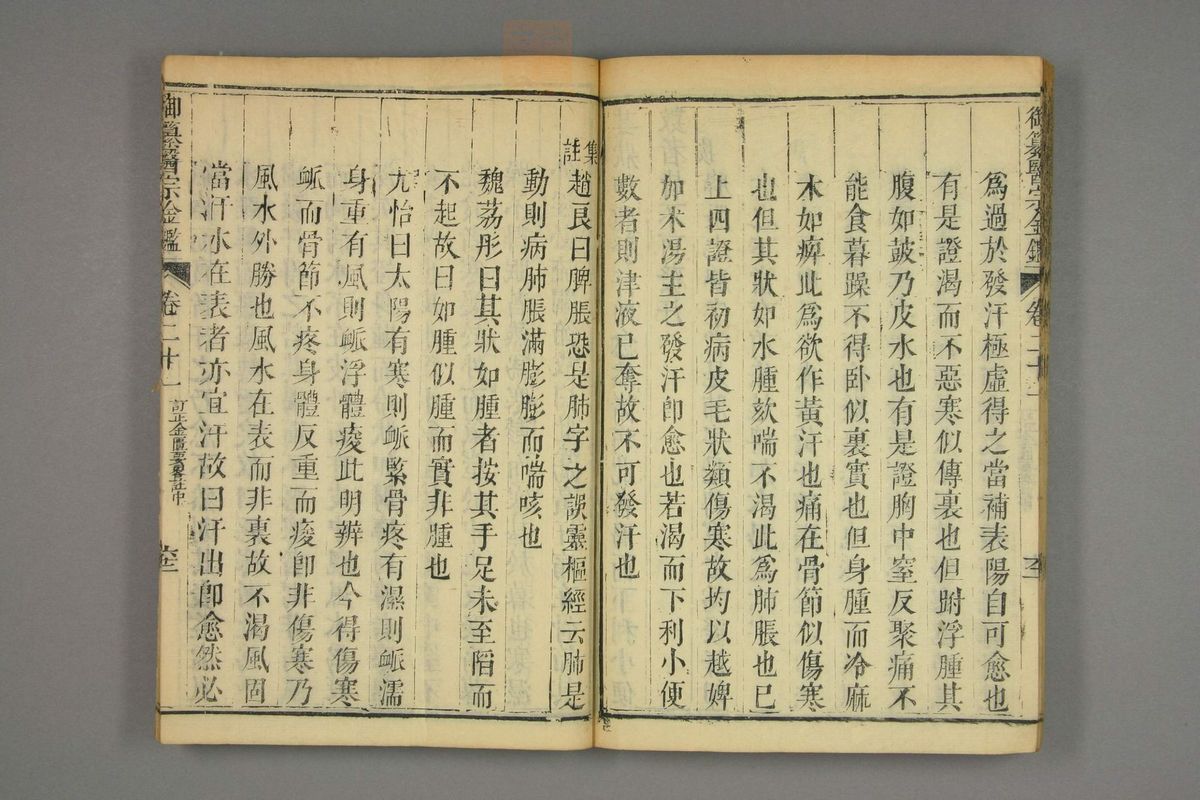 爲過於發汗極虛得之當補表陽自可愈也
有是證渴而不惡寒似傳裏也但跗浮腫其
腹如皷乃皮水也有是證胸中窒反聚痛不
能食暮躁不得卧似裏實也但身腫而冷麻
木如痺此爲欲作黃汗也痛在骨節似傷寒
也但其狀如水腫欬喘不渴此爲肺脹也已
上四證皆初病皮毛狀類傷寒故均以越婢
加术湯主之發汗卽愈也若渴而下利小便
數者則津液已奪故不可發汗也
集註
趙良曰脾脹恐是肺字之誤靈樞經云肺是
動則病肺脹滿膨膨而喘咳也
魏荔彤曰其狀如腫者按其手足未至陷而
不起故曰如腫似腫而實非腫也
尤怡曰太陽有寒則脈緊骨疼有濕則脈濡
身重有風則脈浮體痠此明辨也今得傷寒
脈而骨節不疼身體反重而痠卽非傷寒乃
風水外勝也風水在表而非裏故不渴風固
當汗水在表者亦宜汗故曰汗出卽愈然必
御纂醫宗金鑑 卷二十一 訂正金匱要畧註中
御纂醫宗金鑑 卷二十